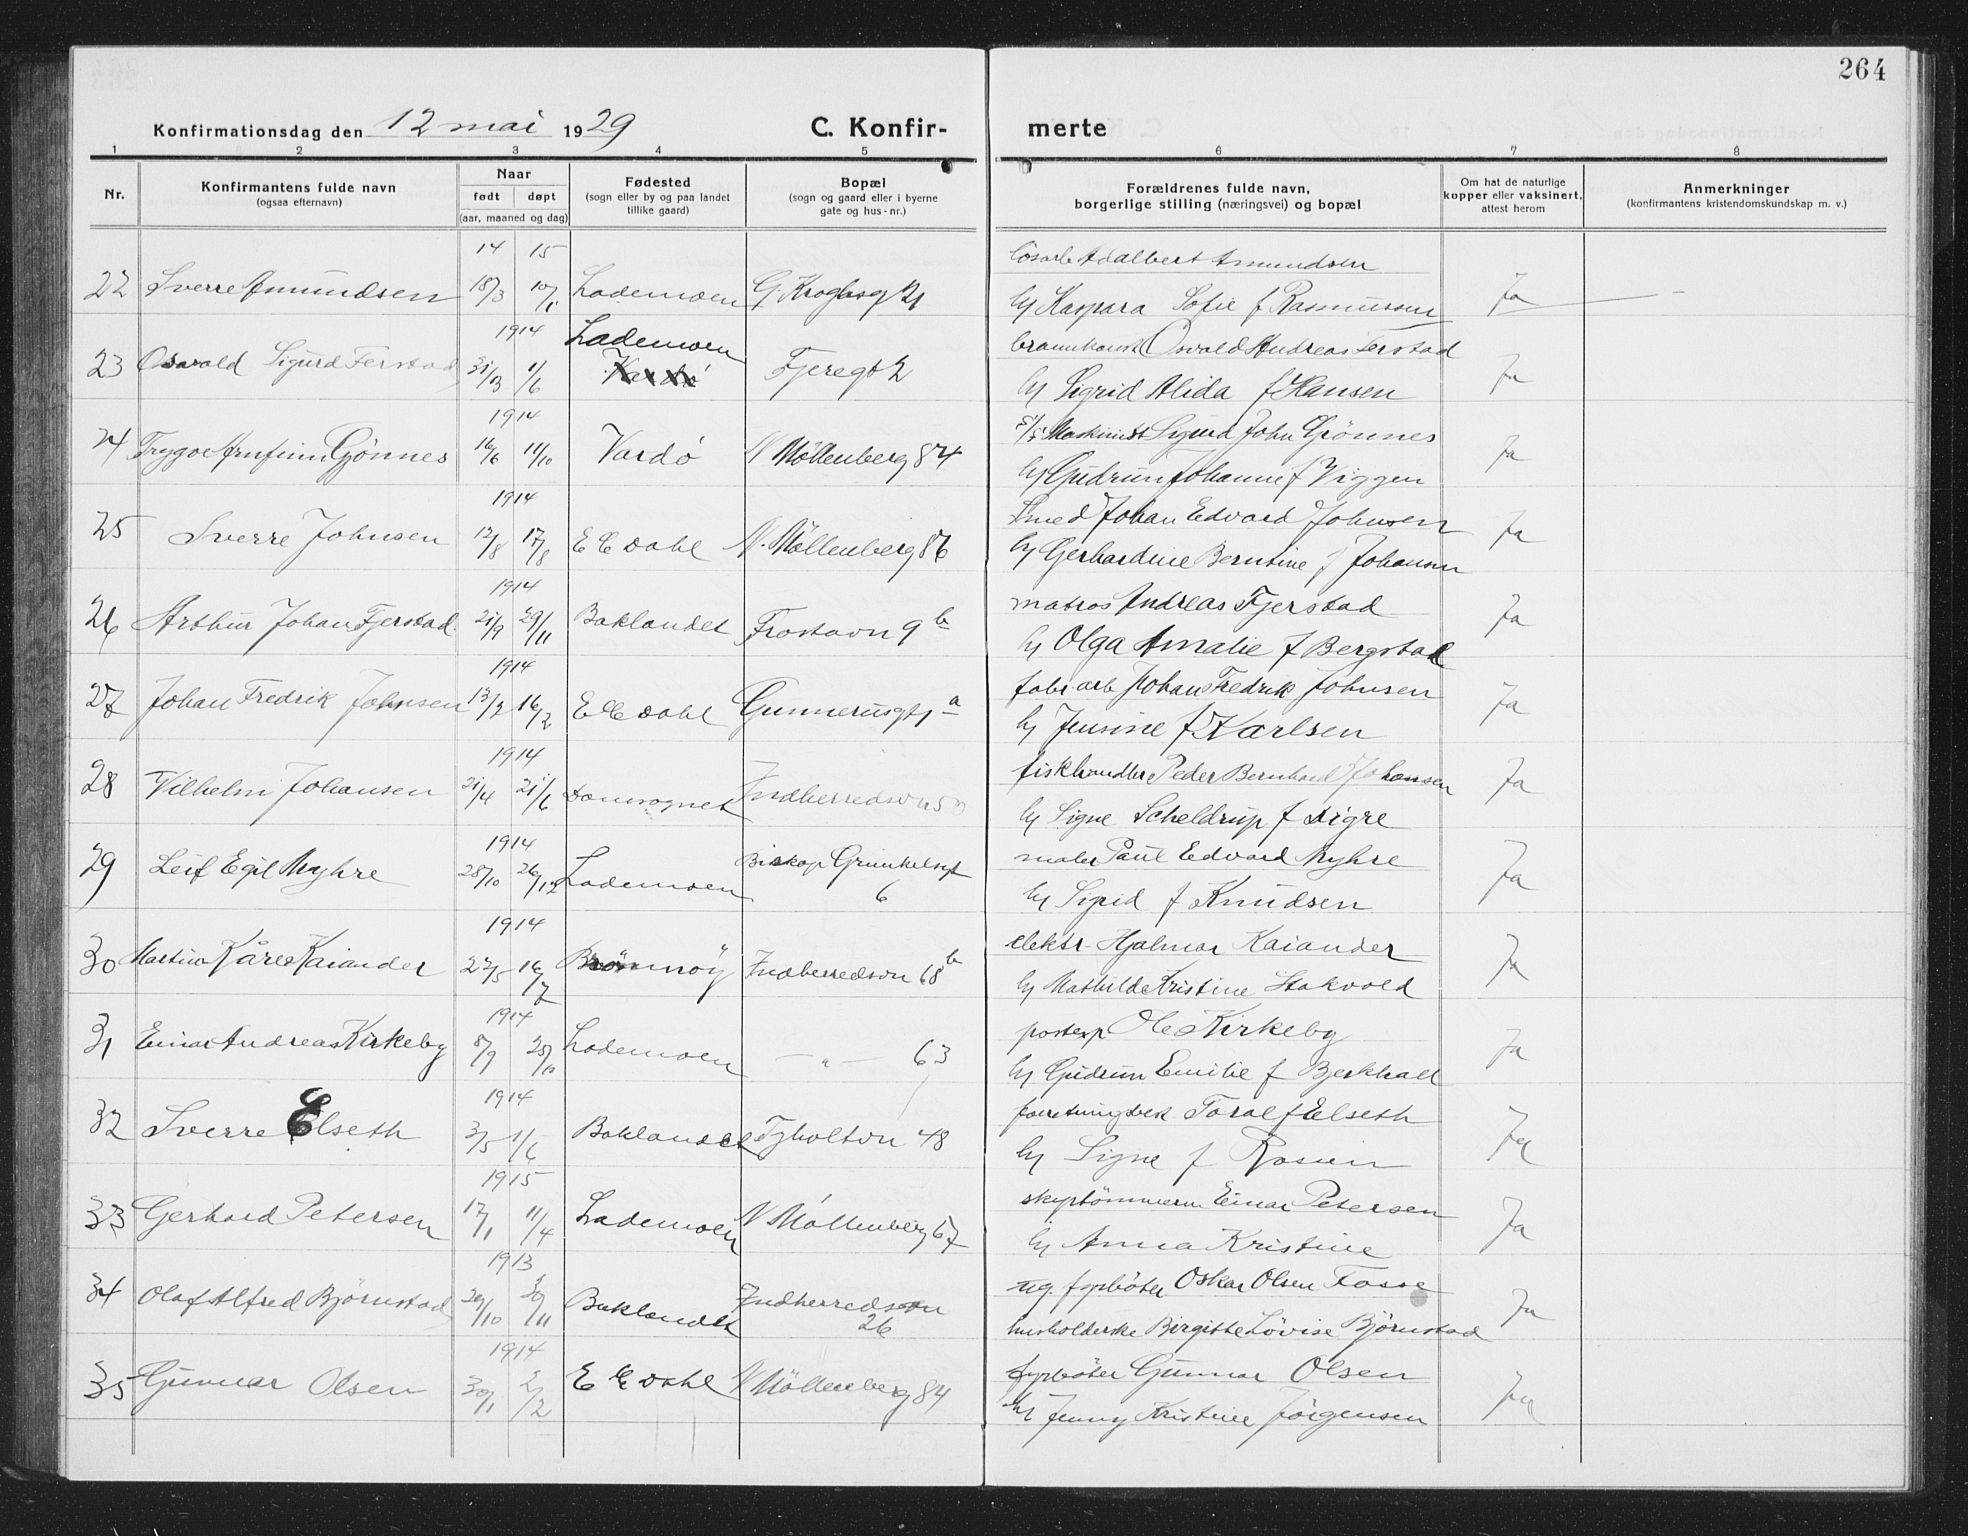 264
Konfirmationsdag den 12 mai 1929 C. Konfir- merte
1 2 3 4 5 6 7 8
Nr. Konfirmantens fulde navn (ogsaa efternavn) Naar født døpt (aar, maaned og dag) Fødested (sogn eller by og paa landet tillike gaard) Bopæl (sogn og gaard eller i byerne gate og hus-nr.) Forældrenes fulde navn, borgerlige stilling (næringsvei) og bopæl Om hat de naturlige kopper eller vaksinert, attest herom Anmerkninger (konfirmantens kristendomskundskap m. v.)
14 15 Adalbert Amundsen
22 Sverre Amundsen 18/3 10/1 Lademoen G. Kroghsg 21 h Kaspara Sofie f Rasmussen Ja —
1914 Lademoen Osvald Andreas Ferstad
23 Osvald Sigurd Ferstad 31/13 1/6 Vardö Fjeregt 2 h Sigrid Alida f Hansen Ja
1914 Maskinist Sigurd John Grönnes
24 Trygve Arnfinn Grönnes 16/6 11/10 Vardó N Möllenberg 84 h Gudrun Johanne f Viggen Ja
1914 Smed Johan Edvard Johnsen
25 Sverre Johnsen 12/8 17/8 E C Dahl N. Möllenberg 86 h Gerhardine Berntine f Johansen Ja
1914 matros Andreas Fjerstad
26 Arthur Johan Fjerstad 21/9 29/11 Baklandet Frostavn 9 b h Olga Amalie f Bergstad Ja
1914 fabr. arb Johan Fredrik Johnsen
27 Johan Fredrik Johnsen 13/2 16/2 E C Dahl Gunnerusgt 1 a h Jensine f Karlsen Ja
1914 fiskhandler Peder Bernhard Johansen
28 Vilhelm Johansen 21/4 21/6 Domsognet h Signe Scheldrup f Digre Ja
1914 maler Paul Edvard Myhre
29 Leif Egil Myhre 28/10 26/12 Lademoen Biskop Grimkelsgt 6 h Sigrid f Knudsen Ja
1914 elektr. Hjalmar Kaiander
30 Martin Kåre Kaiander 22/5 16/7 Brönnöy Indherredsvn 68 b h Mathilde Kristine Stokvold Ja
1914 postexp Ole Kirkeby
31 Einar Andreas Kirkeby 8/9 25/10 Lademoen — " — 63 h Gudrun Emilie f Berkhall Ja
1914 Toralf Elseth
32 Sverre Elseth 3/5 1/6 Baklandet Tyholtvn 48 h Signe f Rosien Ja
1915 Einar Petersen
33 Gerhard Petersen 17/1 11/4 Lademoen N Möllenberg 67 h Anna Kristine Ja
1913 ug. fyrböter Oskar Olsen Fosse
34 Olaf Alfred Björnstad 20/10 30/11 Baklandet Indherredsvn 26 husholderske Birgitte Lovise Björnstad Ja
1914 fyrböter Gunnar Olsen
35 Gunnar Olsen 30/1 2/2 E C Dahl N Möllenberg 84 h Jenny Kristine Jörgensen Ja